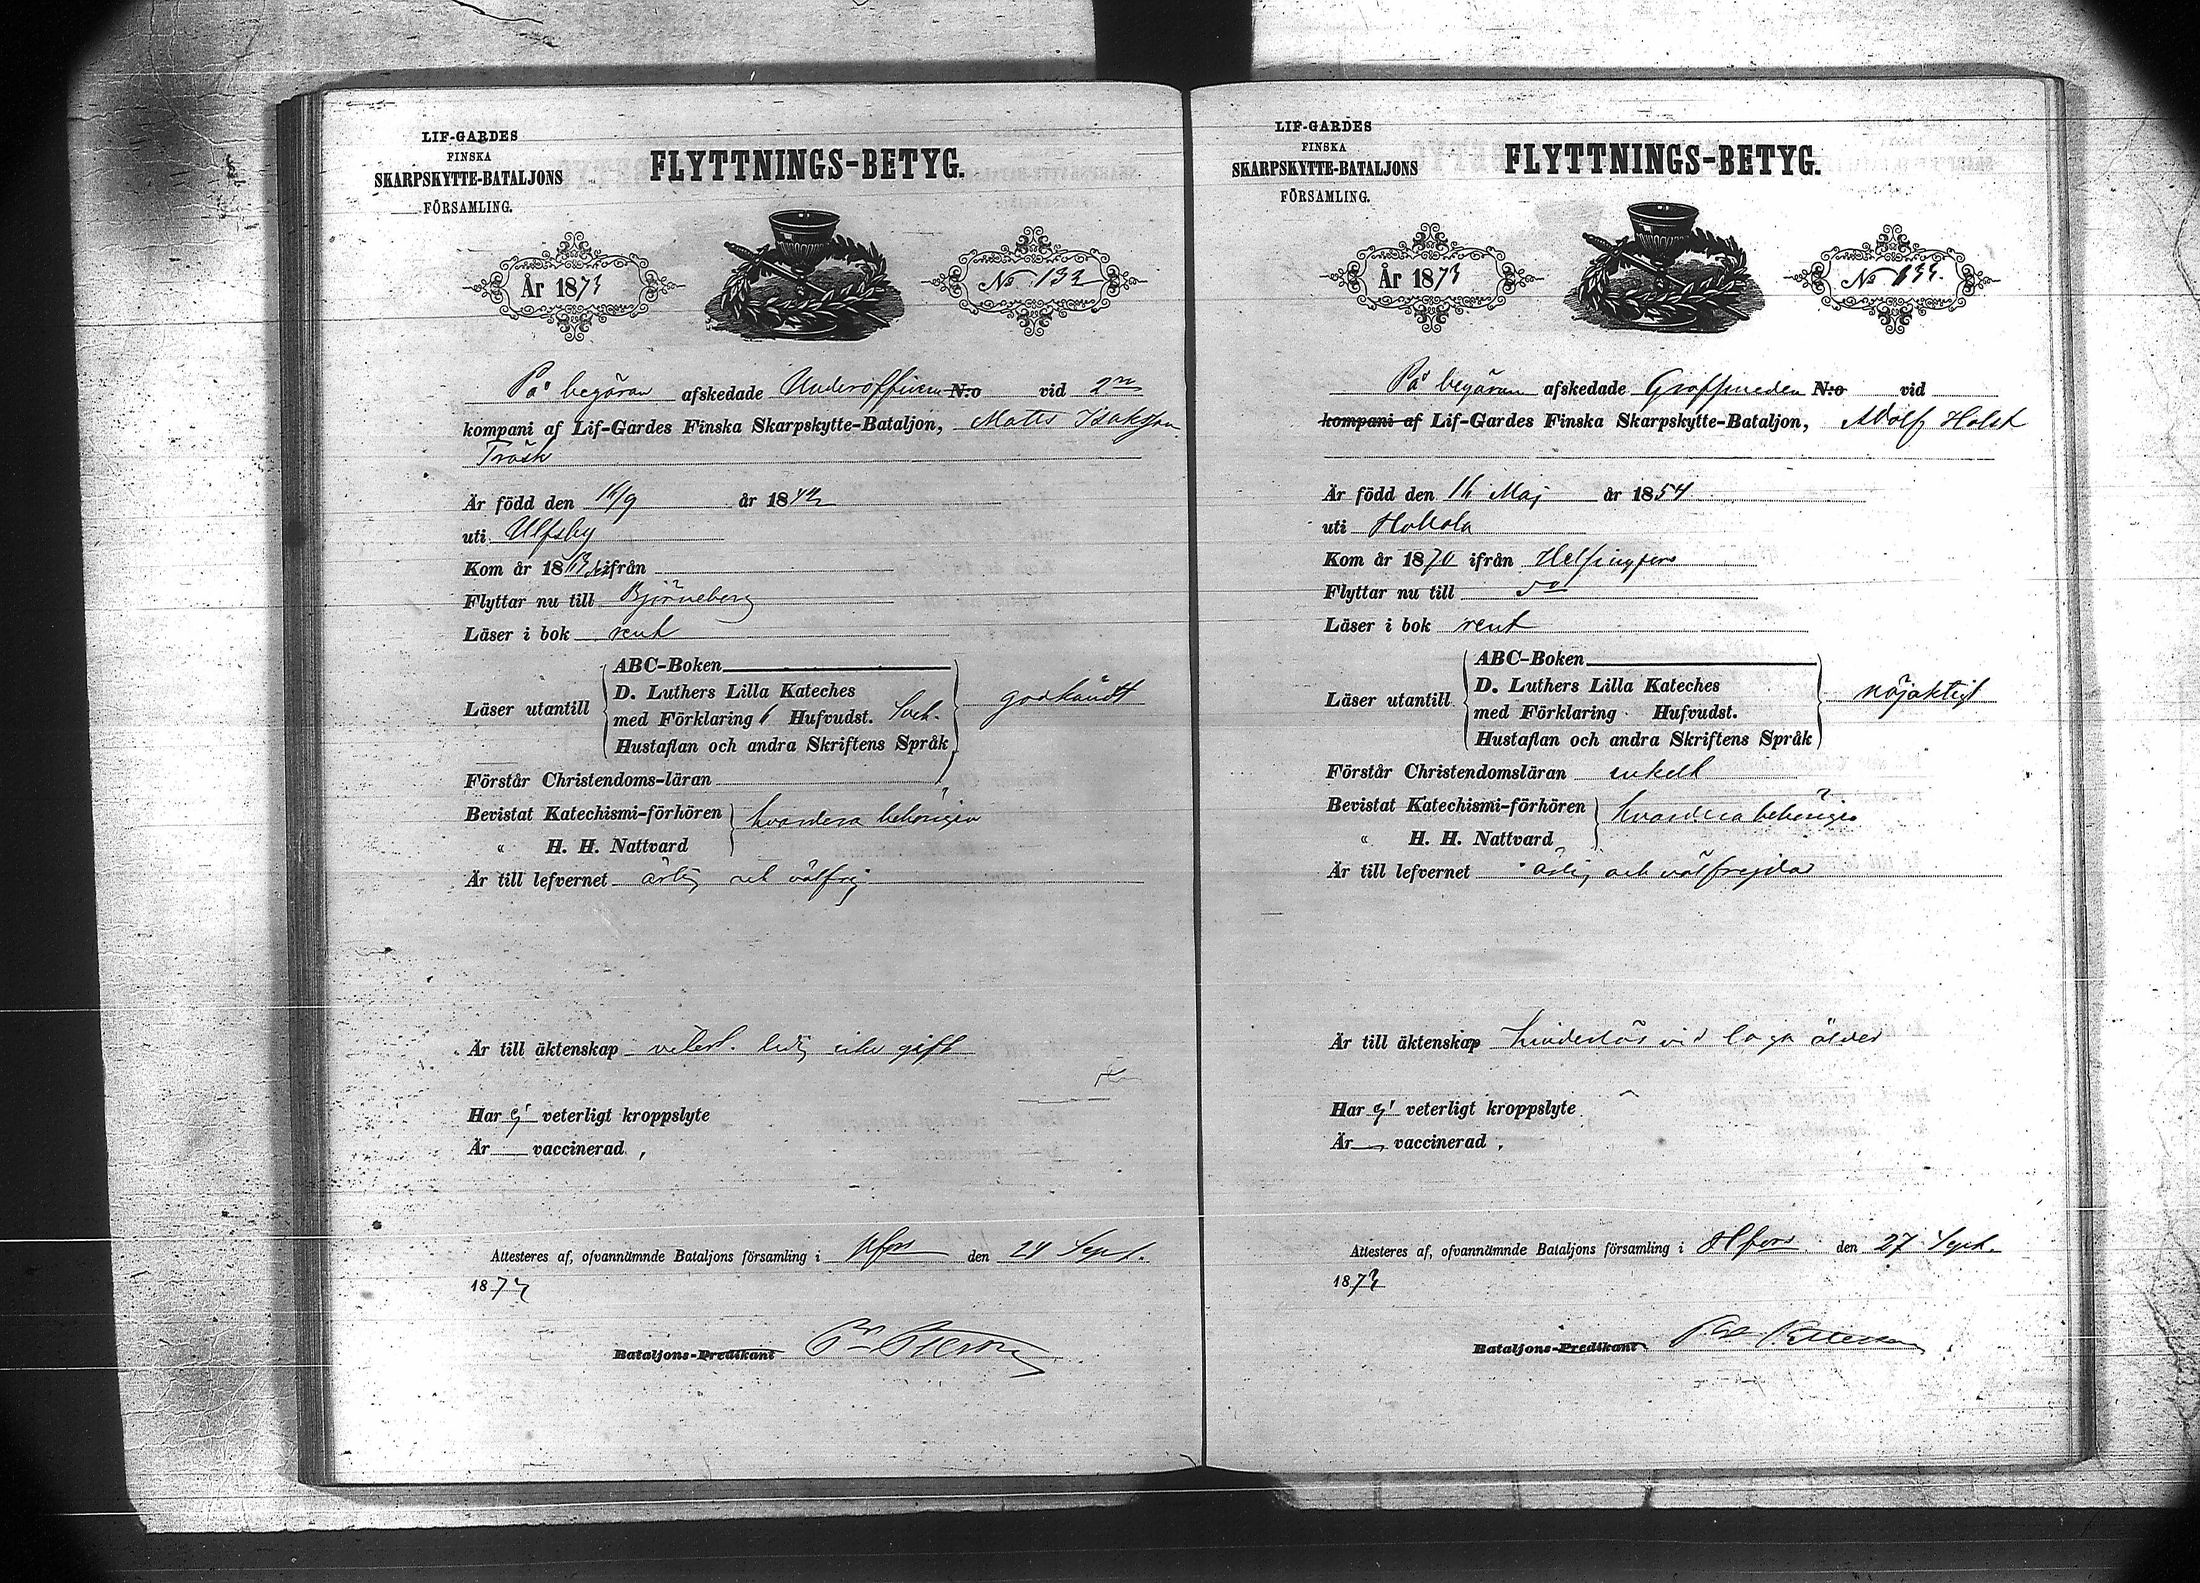 LIF-GARDES
FINSKA
SKARPSKYTTE-BATALJONS
FÖRSAMLING.
FLYTTNINGS-BETYG.
År 1873
No 132
På begäran afskedade Underofficeren N:o vid 2
kompani af Lif-Gardes Finska Skarpskytte-Bataljon, Matts Isaksson
Träsk
Är född den 16/9 år 1842
uti Ulfsby
Kom år 18 ifrån
Flyttar nu till Björneborg
Läser i bok rent
Läser utantill
ABC-Boken
D. Luthers Lilla Kateches
med Förklaring 6 Hufvudst.
Hustaflan och andra Skriftens Språk
godkändt
Förstår Christendoms-läran
Bevistat Katechismi-förhören
" H. H. Nattvard
hvardera behörigen
Är till lefvernet ärlig och välfrejd
Är till äktenskap ledig icke gift
Har ej veterligt kroppslyte
Är vaccinerad,
Attesteres af, ofvannämnde Bataljons församling i Hfors den 24 Sept.
1873
Bataljons-Predikant
LIF-GARDES
FINSKA
SKARPSKYTTE-BATALJONS
FÖRSAMLING.
FLYTTNINGS-BETYG.
År 1873
No 133.
På begäran afskedade Grofsmeden N:o vid
kompani af Lif-Gardes Finska Skarpskytte-Bataljon, Adolf Holst
Är född den 16 Maj år 1854
uti Hollola
Kom år 1870 ifrån Helsingfors
Flyttar nu till do
Läser i bok rent
Läser utantill
ABC-Boken
D. Luthers Lilla Kateches
med Förklaring Hufvudst.
Hustaflan och andra Skriftens Språk
nöjaktigt
Förstår Christendomsläran enkelt
Bevistat Katechismi-förhören
" H. H. Nattvard
hvardera behörigen
Är till lefvernet ärlig och välfrejdad
Är till äktenskap hinderlös vid laga ålder
Har ej veterligt kroppslyte
Är vaccinerad,
Attesteres af, ofvannämnde Bataljons församling i Hfors den 27 Sept.
1873
Bataljons-Predikant